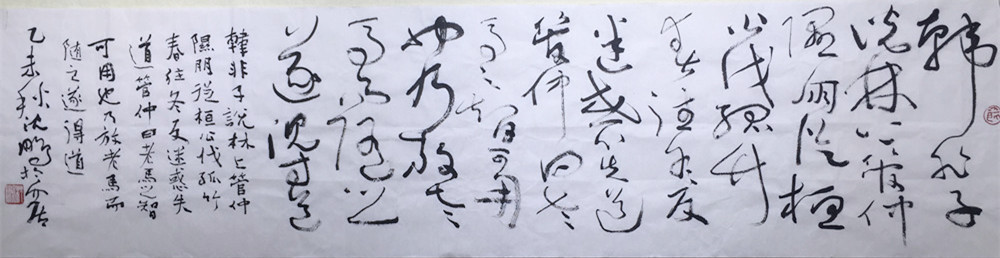 韓非子
说林上管仲
隰朋從桓
公伐孤竹
春往冬反
迷惑失道
管仲曰老
馬之智可用
也乃放老
馬而随之
遂得道
韓非子說林上管仲
隰朋從桓公伐孤竹
春往冬反迷惑失
道管仲曰老馬之智
可用也乃放老馬而
随之遂得道
乙未沈鵬於介居